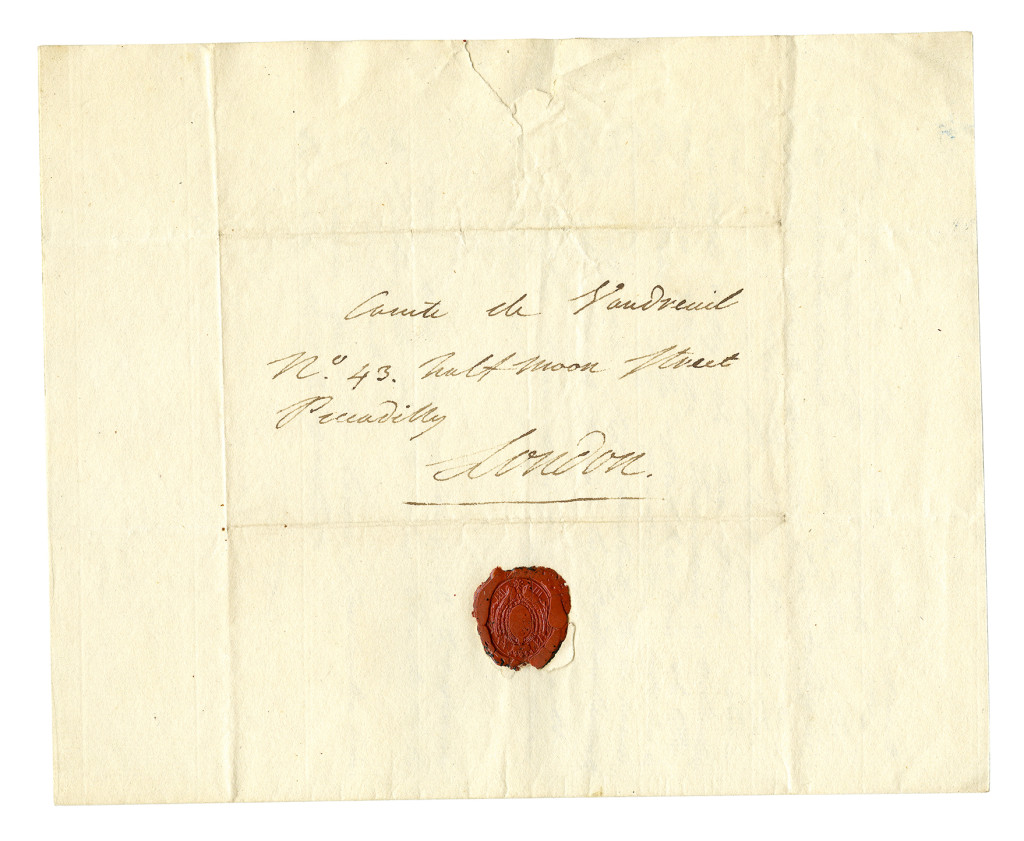 Comte de Vaudreuil
Nº. 43. half moon Street
Piccadilly
London.